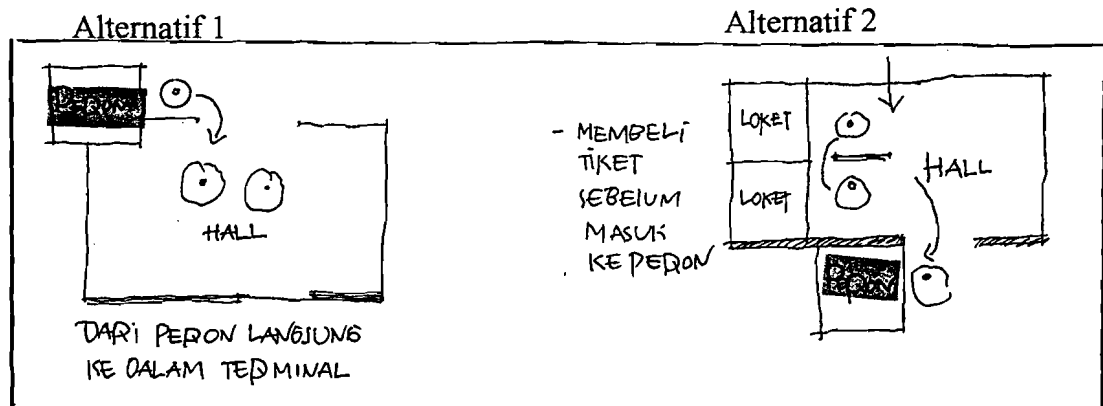 Alternatif 1
Alternatif 2
PERON
HALL
DARI PERON LANGSUNG
KE DALAM TERMINAL
- MEMBELI
TIKET
SEBELUM
MASUK
KE PERON
LOKET
LOKET
HALL
PERON